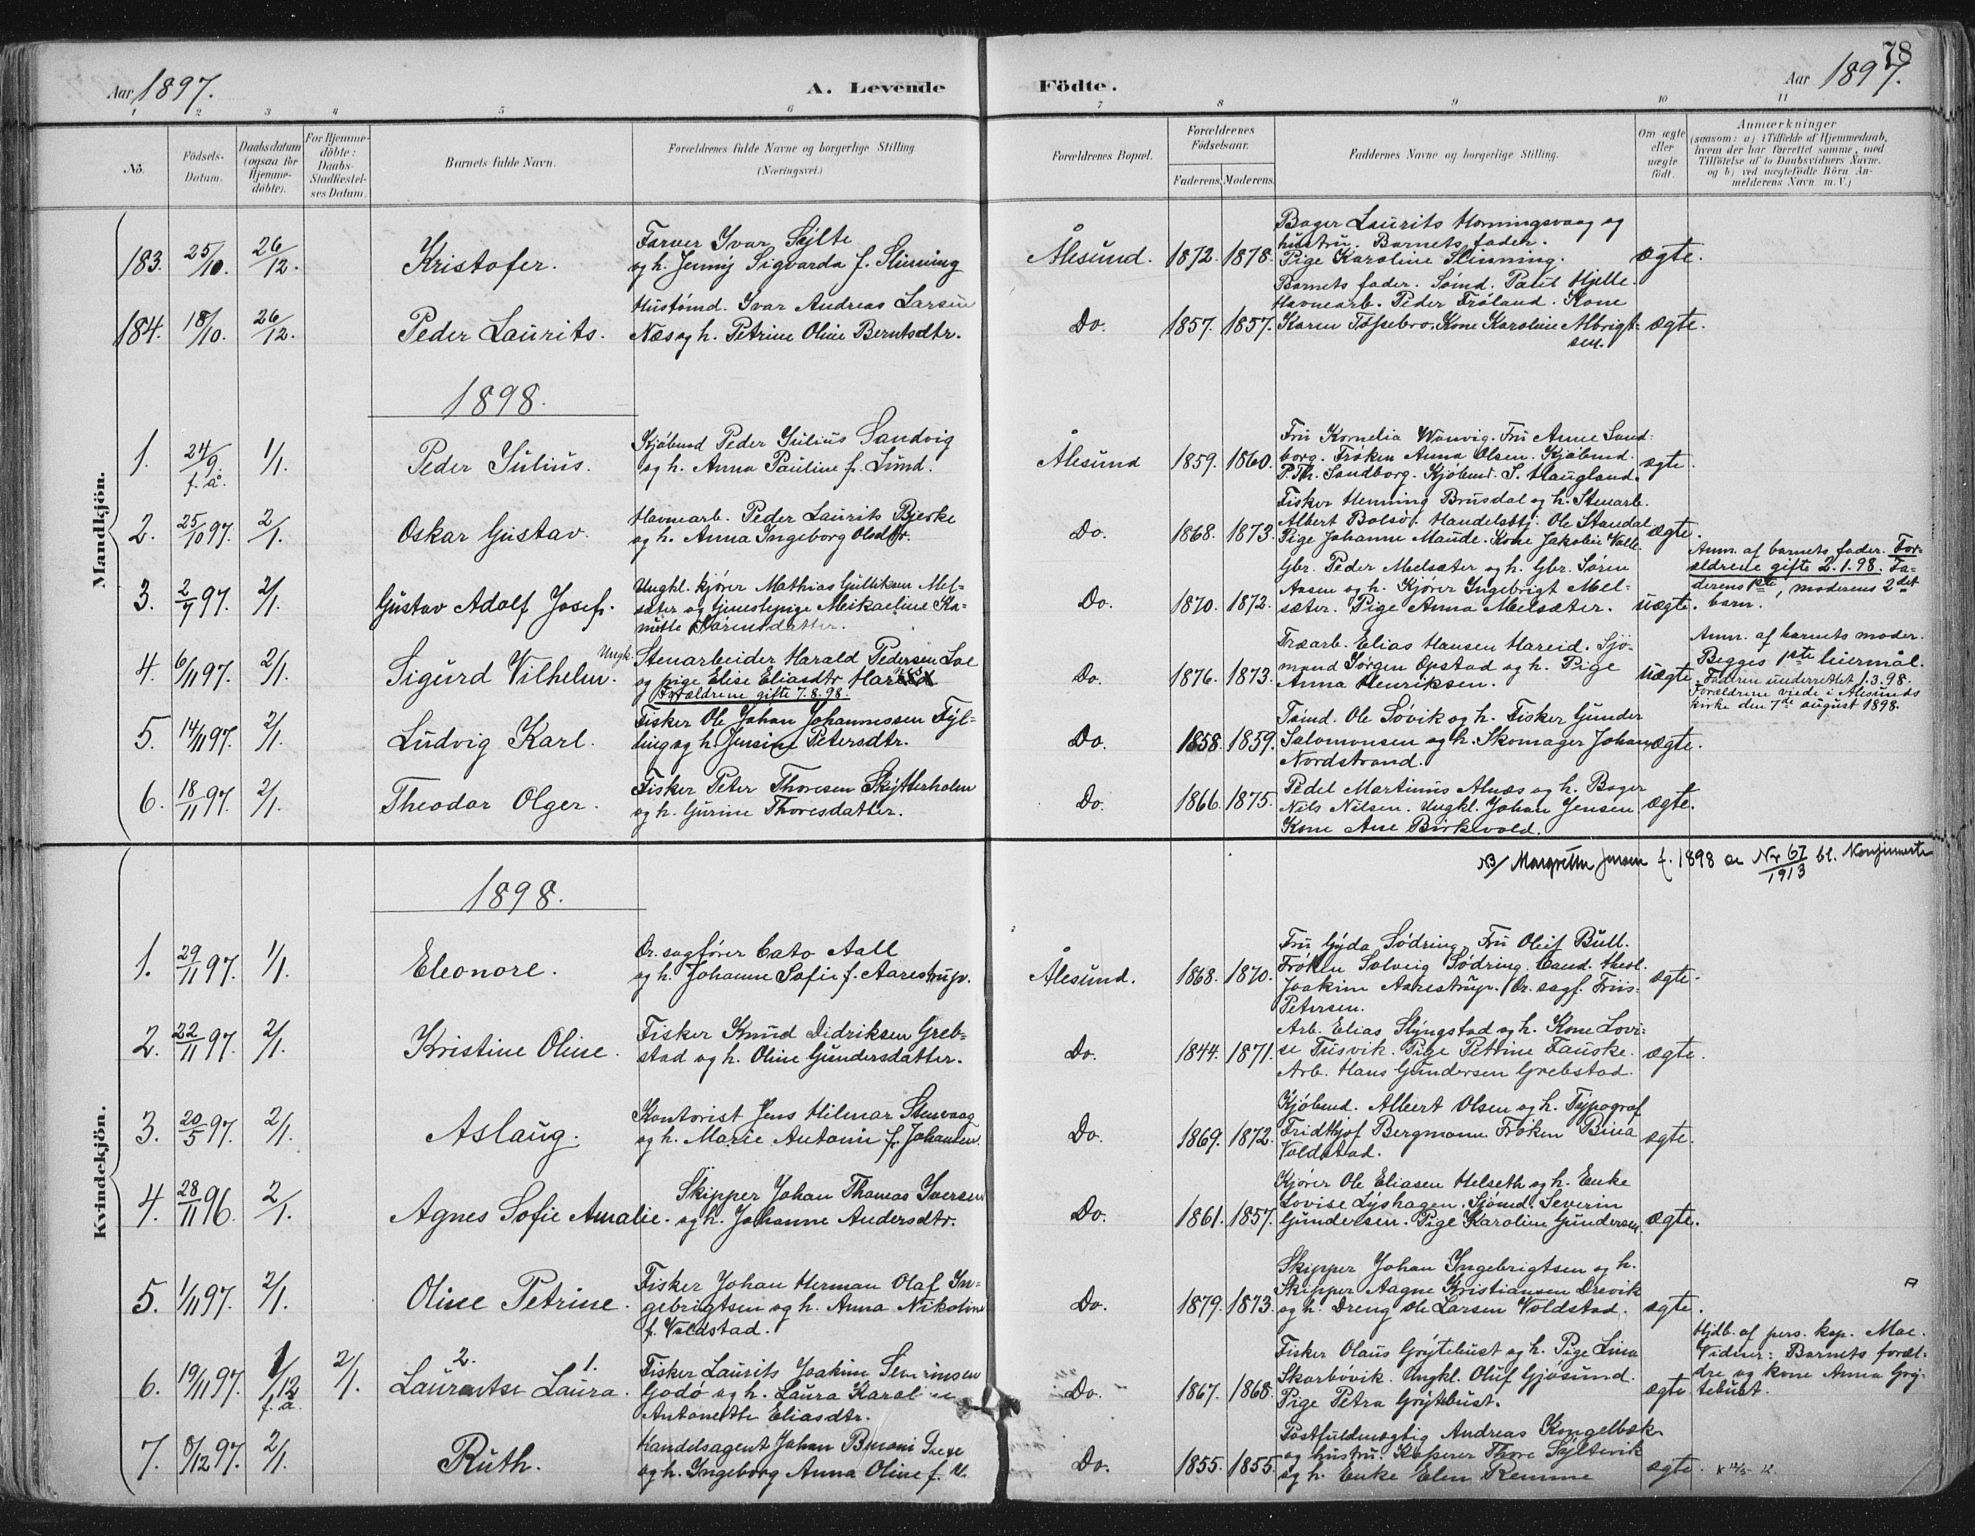 78
Aar 1897.
A. Levende Födte.
Aar 1897.
1 2 3 4 5 6 7 8 9 10 11
No.
Födsels-
Datum.
Daabsdatum
(ogsaa for
Hjemme-
döbte).
For Hjemme-
döbte:
Daabs-
Stadfæstel-
ses Datum.
Barnets fulde Navn.
Forældrenes fulde Navne og borgerlige Stilling.
(Næringsvei.)
Forældrenes Bopæl.
Forældrenes
Födselsaar.
Faderens. Moderens.
Faddernes Navne og borgerlige Stilling.
Om ægte
eller
uægte
födt.
Anmærkninger
(saasom: a) i Tilfælde af Hjemmedaab,
hvem der har forrettet samme, med
Tilföielse af to Daabsvidners Navne.
og b) ved uægtefödte Börn An-
melderens Navn m. V.)
Mandkjön.
183. 25/10. 26/12. Kristofer.
Farver Ivar Sylte
og h. Jenny Sigvarda f. Slinning
Ålesund. 1872. 1878.
Bager Laurits Honningsvaag og
hustru. Barnets fader.
Pige Karoline Slinning.
ægte.
184. 18/10. 26/12. Peder Laurits.
Hustømd. Ivar Andreas Larsen
Næs og h. Petrine Oline Berntsdtr.
Do. 1857. 1857.
Barnets fader. Sømd. Paul Hjelle.
Havnearb. Peder Frøland. Kone
Karen Tøssebro. Kone Karoline Albrigt-
sen.
ægte.
1898.
1. 24/9 f. å. 1/1. Peder Julius.
Kjøbmd Peder Julius Sandvig
og h. Anna Pauline f. Lund.
Ålesund 1859. 1860.
Fru Kornelia Wanvig. Fru Anne Sand-
borg. Frøken Anna Olsen. Kjøbmd.
P. Th. Sandborg. Kjøbmd. S. Haugland.
ægte.
2. 25/10 97. 2/1. Oskar Gustav.
Havnearb. Peder Laurits Bjerke
og h. Anna Ingeborg Olsdtr.
Do. 1868. 1873.
Fisker Henning Brusdal og h. Stenarb.
Albert Bolsø. Handelsbtj. Ole Standal
Pige Johanne Maude. Kone Jakobine Valle.
ægte.
3. 2/7 97. 2/1. Gustav Adolf Josef.
Ungkl. kjører Mathias Gulliksen Mel-
sæter og tjenestepige Mikaeline Ka-
Sørensdatter.
Do. 1870. 1872.
Gbr. Peder Melsæter og h. Gbr. Søren
Aasen og h. Kjører Ingebrigt Mel-
sæter. Pige Anna Melsæter.
uægte.
Anm. af barnets fader. For-
ældrene gifte 2.1.98. Fa-
derens 1ste, moderens 2det
barn.
4. 6/11 97. 2/1. Sigurd Vilhelm.
Ungk. Stenarbeider Harald Pedersen
og pige Elise Eliasdtr
Forældrene gifte 7.8.98.
Do. 1876. 1873.
Træarb. Elias Hansen Hareid. Sjö-
mand Jørgen Opstad og h. Pige
Anna Henriksen.
uægte.
Anm. af barnets moder.
Begges 1ste leiermål.
Faderen underrettet 1.3.98.
Forældrene viede i Ålesunds
kirke den 7de august 1898.
5. 14/11 97. 2/1. Ludvig Karl.
Fisker Ole Johan Johannessen Fyl-
ling og h. Jensine Petersdtr.
Do. 1858. 1859.
Tømd. Ole Søvik og h. Fisker Gunder
Salomonsen og h. Skomager Johan
Nordstrand.
ægte.
6. 18/11 97. 2/1. Theodor Olger.
Fisker Peter Thoresen Skytterholm
og h. Gurine Thoresdatter.
Do. 1866. 1875.
Pedel Martinus Alnæs og h. Bager
Nils Nilsen. Ungkl. Johan Jensen
Kone Ane Birkevold.
ægte.
NB/ Margrethe Jensen f. 1898 se Nr 67/1913 bl. Konfirmerte
Kvindekjön.
1898.
1. 29/11 97. 1/1. Eleonore.
Or. sagfører Cato Aall
og h. Johanne Sofie f. Aarestrup.
Ålesund. 1868. 1870.
Fru Gyda Södring. Fru Oleif Bull.
Frøken Solveig Södring. Cand. theol.
Joakim Aarestrup. Or. sagf. Friis-
Petersen.
ægte.
2. 22/11 97. 2/1. Kristine Oline.
Fisker Knud Didriksen Greb-
stad og h. Oline Gundersdatter.
Do. 1844. 1871.
Arb. Elias Slyngstad og h. Kone Lovi-
se Tusvik. Pige Petrine Fauske.
Arb. Hans Gundersen Grebstad.
ægte.
3. 20/5 97. 2/1. Aslaug.
Kontorist Jens Hilmar Stenvaag
og h. Marie Antonie f. Johansen.
Do. 1869. 1872.
Kjøbmd. Albert Olsen og h. Typograf
Fridthjof Bergmann. Frøken Bina
Voldstad.
ægte.
4. 28/11 96. 2/1. Agnes Sofie Amalie.
Skipper Johan Thomas Iversen
og h. Johanne Andersdtr.
Do. 1861. 1857.
Kjører Ole Eliasen Helseth og h. Enke
Lovise Lyshagen. Sjömd. Severin
Gundersen. Pige Karoline Gundersen
ægte.
5. 1/11 97. 2/1. Oline Petrine.
Fisker Johan Herman Olaf In-
gebrigtsen og h. Anna Nikoline
f. Voldstad.
Do. 1879. 1873.
Skipper Johan Ingebrigtsen og h.
Skipper Aagne Kristiansen Drevik
og h. Dreng Ole Larsen Voldstad.
ægte.
6. 19/11 97. 1/12 f. a. 2/1. 2. 1.
Laurentse Laura.
Fisker Laurits Joakim Severinsen
Godö og h. Laura Karoline
Antonette Eliasdtr.
Do. 1867. 1868.
Fisker Olaus Grytebust og h. Pige Lina
Skorbövik. Ungkl. Oluf Gjøsund.
Pige Petra Grytebust.
ægte
Hjdb. af pers. kap. Moe.
Vidner: Barnets foræl-
dre og kone Anna Gry-
tebust.
7. 8/12 97. 2/1. Ruth.
Handelsagent Johan
og h. Ingeborg Anna Oline f.
Do. 1855. 1855.
Postfuldmægtig Andreas Kongelbæk
og hustru. Kasserer Thore Syltevik
og h. Enke Elen Remme
ægte.